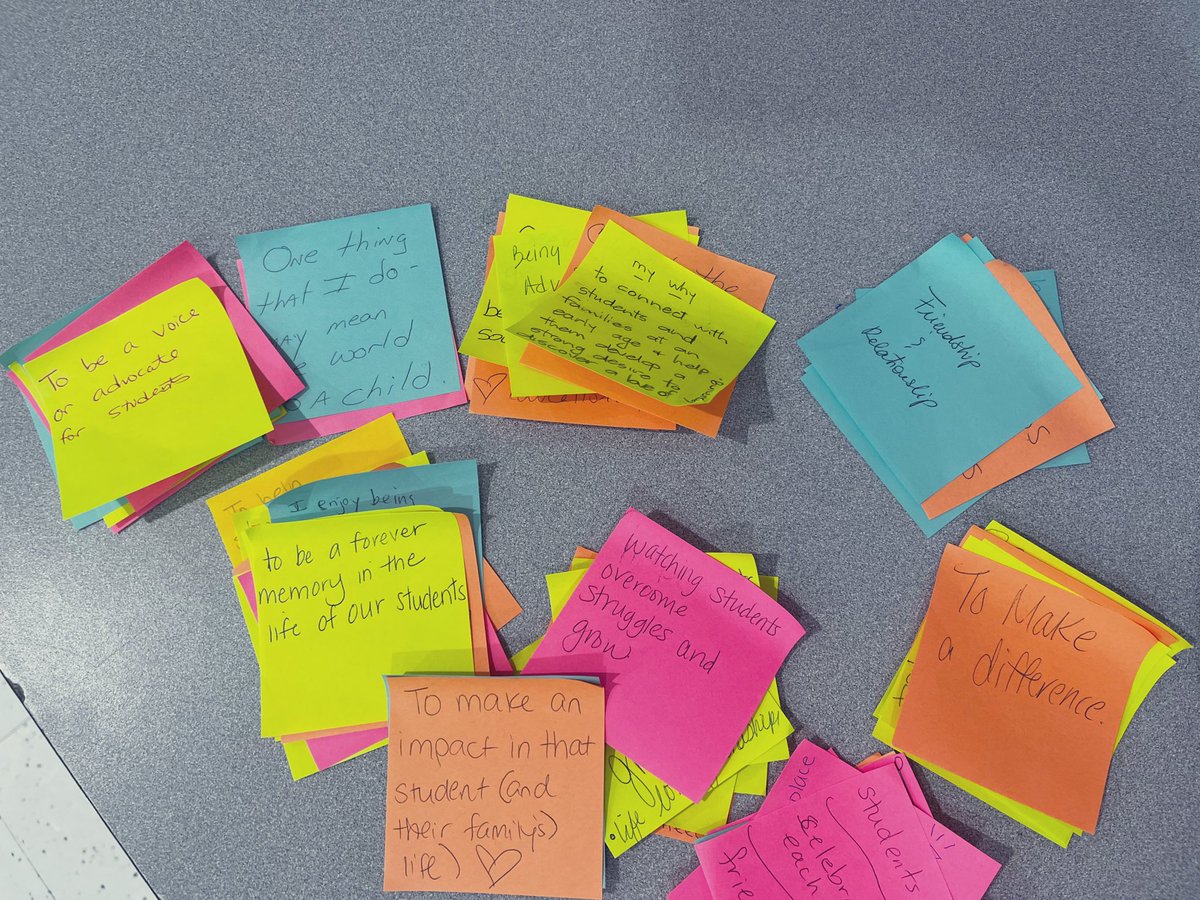 To be a voice
or advocate
for students
One thing
that I do -
may mean
world
A child.
Being
Adv
my why
to connect with
students and
families at an
early age & help
them develop a
strong desire to
discover a love of
Friendship
&
Relationship
I enjoy being
to be a forever
memory in the
life of our students
watching students
overcome
struggles and
grow
To Make
a difference.
To make an
impact in that
student (and
their family's)
life) ♡
life
place
students
celebr
each
frie